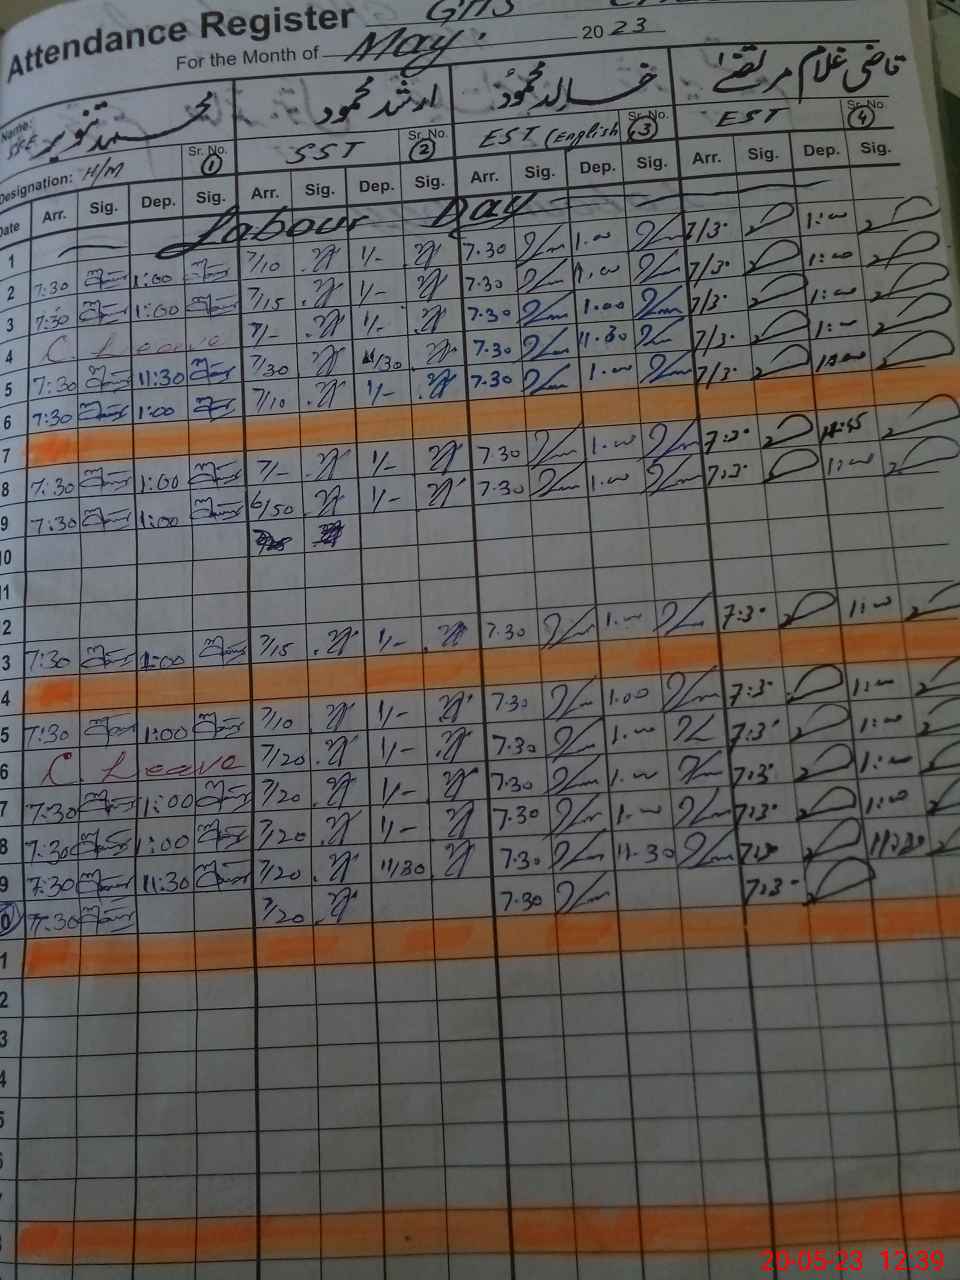 Attendance Register GHS
For the Month of May. 2023
Name: محمد تنویر SSE ارشد محمود خالد محمود قاضی غلام مرتضیٰ
Designation: H/M Sr. No. 1 SST Sr. No. 2 EST (English) Sr. No. 3 EST Sr. No. 4
Date Arr. Sig. Dep. Sig. Arr. Sig. Dep. Sig. Arr. Sig. Dep. Sig. Arr. Sig. Dep. Sig.
1 Labour Day
2 7:30 1:00 7/10 1/- 7.30 1.00 7/3. 1:00
3 7:30 1:00 7/15 1/- 7.30 1.00 7/3. 1:00
4 C. Leave 7/- 1/- 7.30 1.00 7/3. 1:00
5 7:30 11:30 7/30 11/30 7.30 11.30 7/3. 1:00
6 7:30 1:00 7/10 1/- 7.30 1.00 7/3.
7
8 7:30 1:00 7/- 1/- 7.30 1.00
9 7:30 1:00 6/50 1/- 7.30 1.00 7:3. 1:00
10
11
2
3 7:30 1:00 7/15 1/- 7.30 1.00 7:3. 1:00
4
5 7:30 1:00 7/10 1/- 7.30 1.00 7:3. 1:00
6 C. Leave 7/20 1/- 7.30 1.00 7:3. 1:00
7 7:30 1:00 7/20 1/- 7.30 1.00 7:3. 1:00
8 7:30 1:00 7/20 1/- 7.30 1.00 7:3. 1:00
9 7:30 11:30 7/20 11/30 7.30 11.30 7:30 11:30
0 7:30 7/20 7.30 7:3.
1
2
3
4
5
6
7
8
20-05-23 12:39